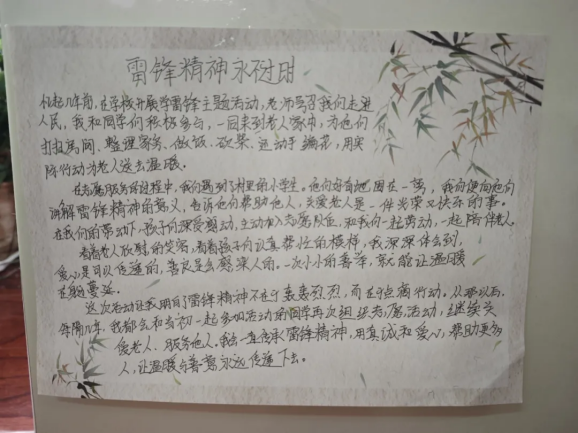 雷锋精神永秘册
几年前，在学校开展学雷锋主题活动，老师号召我们走进
人民，我和同学们积极参与，一同来到老人家中，为他们
打扫房间、整理家务、做饭、砍柴、运动手，用实
际行动为老人送去温暖。
在志愿服务的过程中，我们遇到了村里的小学生。他们好奇地围在一旁，我们便向他们
讲解雷锋精神的意义，告诉他们帮助他人、关爱老人是一件光荣又快乐的事。
在我们的带动下，孩子们深受感动，主动加入志愿队伍，和我们一起劳动，一起陪伴老人。
看着老人欣慰的笑容，看着孩子们认真帮忙的模样，我深深体会到，
爱心是可以传递的，善良是会感染人的。一次小小的善举，就能让温暖
蔓延。
这次活动让我明白了雷锋精神不在于轰轰烈烈，而在于点滴行动。从那以后，
每隔几年，我都会和当初一起参加活动的同学再次组织志愿活动，继续关
爱老人、服务他人。我会一直传承雷锋精神，用真诚和爱心，帮助更多
人，让温暖与善意永远传递下去。